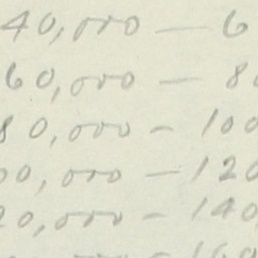 40,000 — 6
60,000 — 80
80,000 — 100
00,000 — 120
20,000 — 140